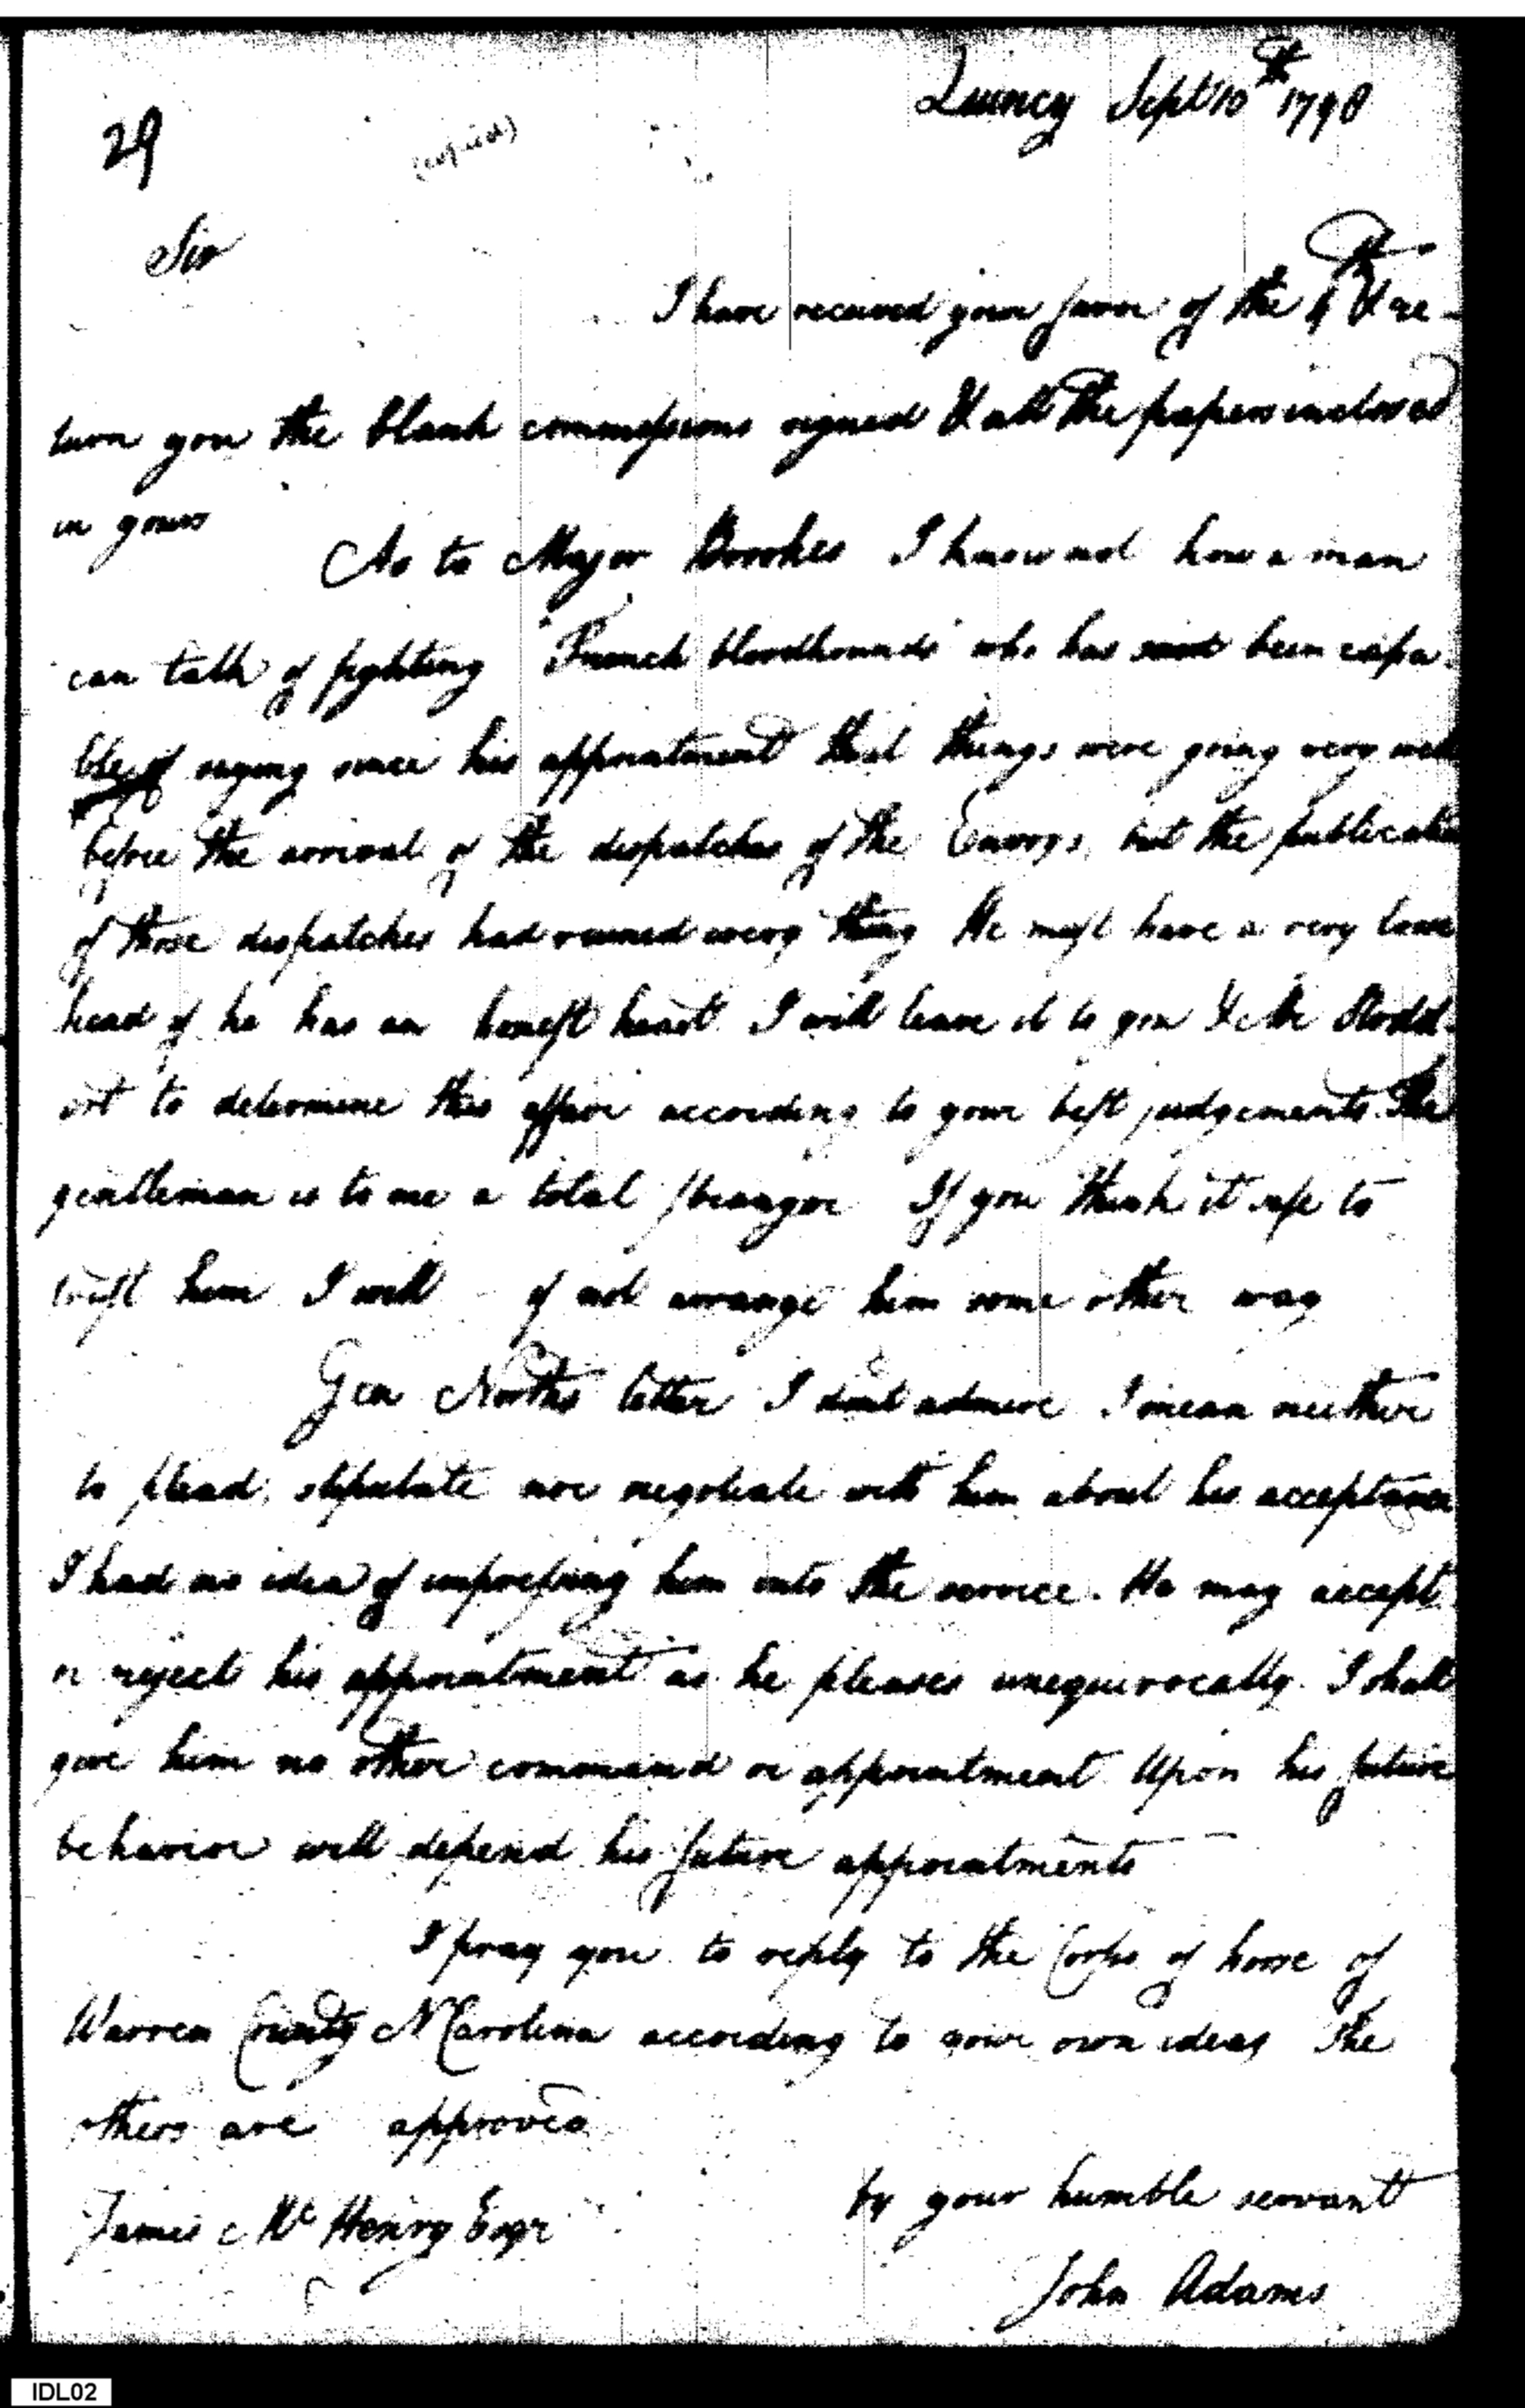 Quincy Sept 10th 1798
29
(copied)
Sir
I have received your favor of the 4th & re-
turn you the blank commissions signed & all the papers inclosed
in yours
As to Major Brookes I know not how a man
can talk of fighting "French bloodhounds" who has been capa-
ble of saying since his appointment that things were going very well
before the arrival of the dispatches of the Envoys, but the publication
of those dispatches had ruined every thing He must have a very lame
head if he has an honest heart. I will leave it to you & Mr Stodd-
ert to determine this affair according to your best judgements. The
gentleman is to me a total stranger If you think it safe to
trust him I will if not arrange him some other way
Gen Norths letter I dont admire I mean neither
to plead, stipulate nor negotiate with him about his acceptance
I had no idea of impressing him into the service. He may accept
or reject his appointment as he pleases unequivocally. I shall
give him no other command or appointment Upon his future
behavior will depend his future appointments
I pray you to reply to the Corps of horse of
Warren County N Carolina according to your own ideas The
others are approved
James McHenry Esqr
yr your humble servant
John Adams
IDL02